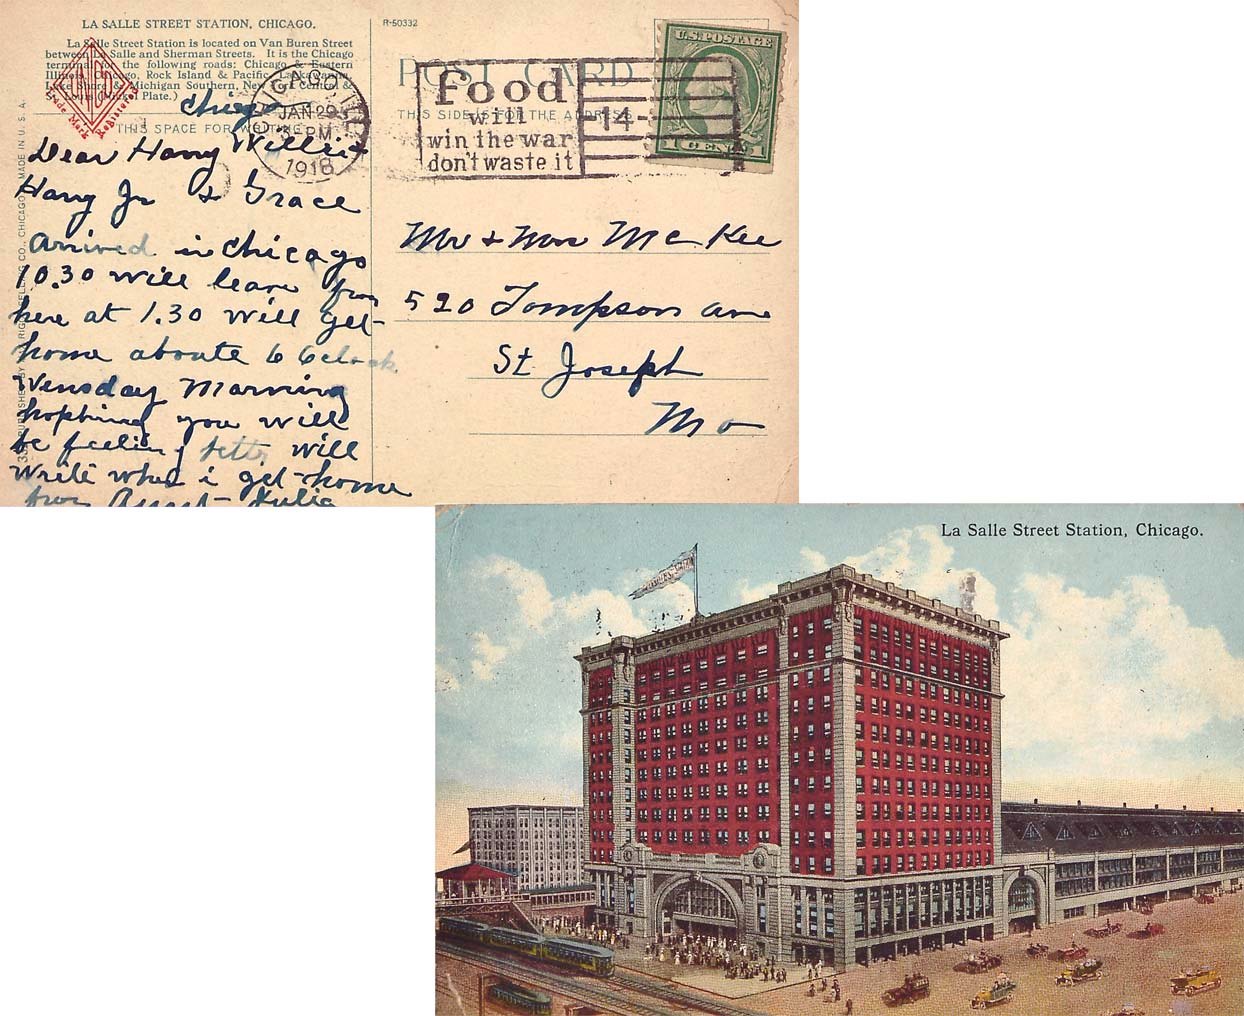 LA SALLE STREET STATION, CHICAGO.
La Salle Street Station is located on Van Buren Street
between La Salle and Sherman Streets. It is the Chicago
terminal for the following roads: Chicago & Eastern
Illinois, Chicago, Rock Island & Pacific, Lackawanna,
Lake Shore & Michigan Southern, New York Central &
St. Louis (Nickel Plate.)
Trade Mark Registered
THIS SPACE FOR WRITING
MADE IN U. S. A.
CO., CHICAGO
PUBLISHED BY
R-50332
POST CARD
THIS SIDE IS FOR THE ADDRESS
CHICAGO, ILL.
JAN 29
PM
1918
Food
will
win the war
don't waste it
14
U.S. POSTAGE
1 CENTS 1
Chicago
Dear Harry Willie &
Harry Jr & Grace
Arrived in Chicago
10.30 will leave from
here at 1.30 will get
home aboute 6 6clock
Wensday Marning
hopting you will
be feeling bette will
write when i get home
from Aunt Julia
Mr & Mrs Mc Kee
520 Tompson ave
St Joseph
Mo
La Salle Street Station, Chicago.